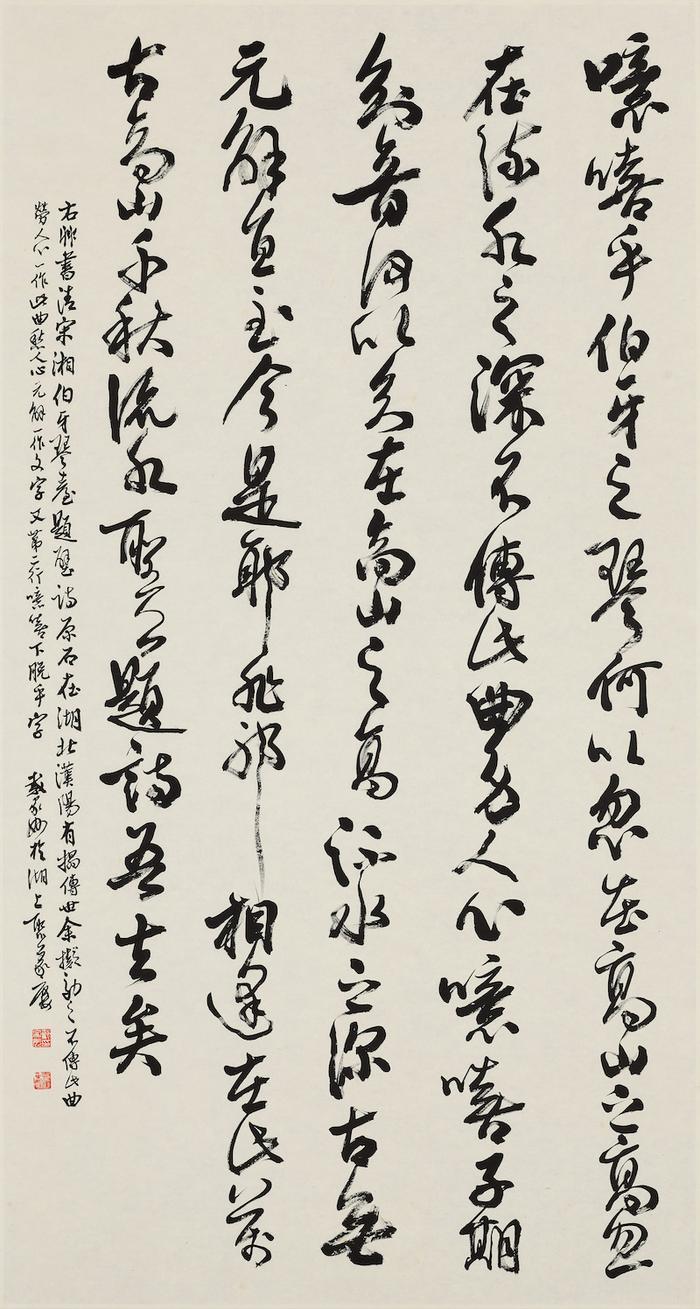 噫嘻乎伯牙之琴何以忽在高山之高忽
在流水之深不傳此曲勞人心噫嘻子期
知音何以知在高山之高流水之深古無
元解直至今是耶非耶相逢在此萬
古高山千秋流水壁上題詩吾去矣
右臨書清宋湘伯牙琴臺題壁詩原石在湖北漢陽有搨傳世余擬之不傳此曲
勞人心一作此曲愁人心元解一作文字又第二行噫嘻下脫乎字 戴家妙於湖上